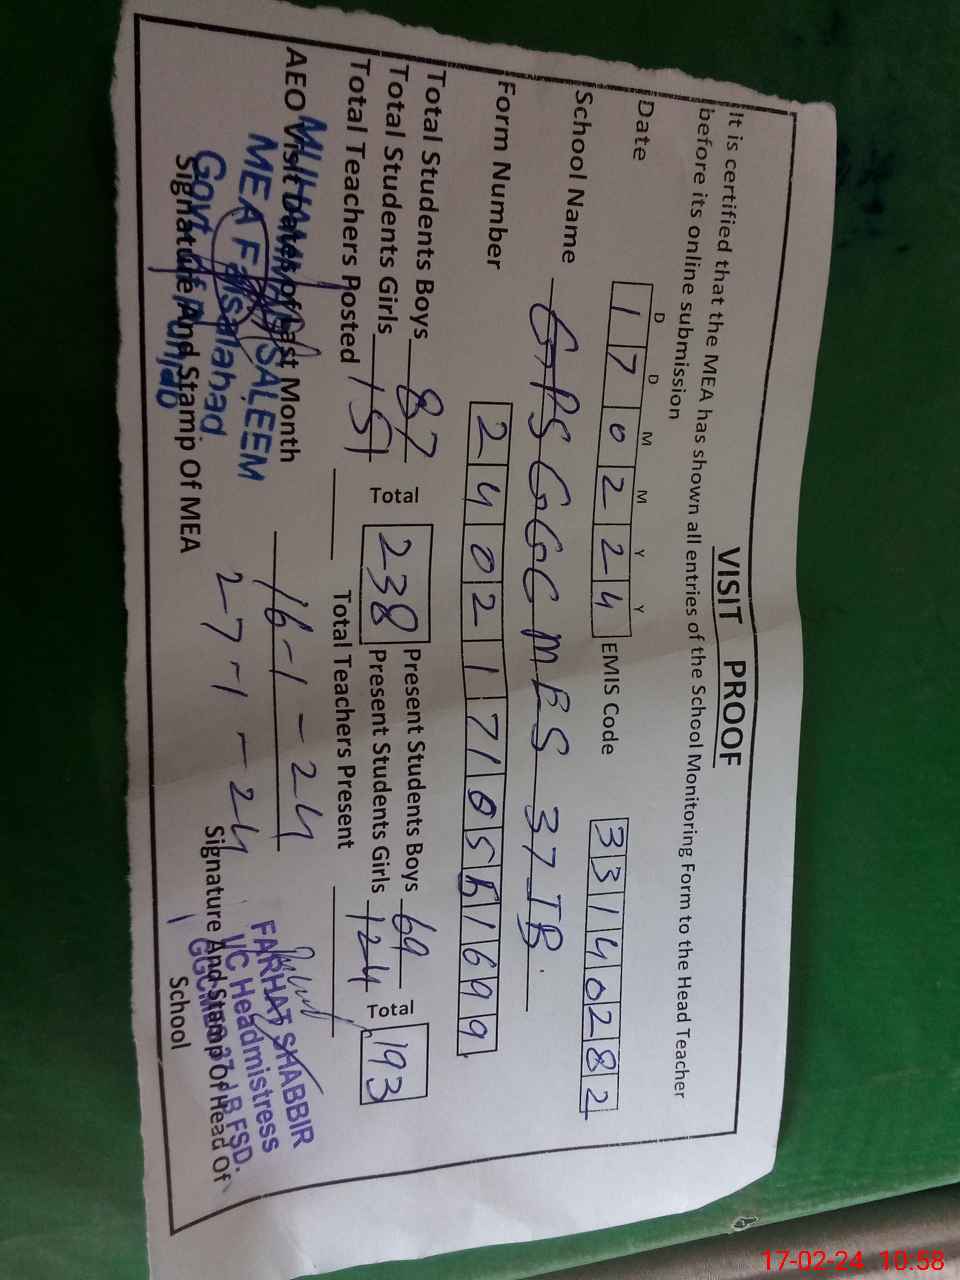 VISIT PROOF
It is certified that the MEA has shown all entries of the School Monitoring Form to the Head Teacher
before its online submission
D D M M Y Y
Date 170224 EMIS Code 33140282
School Name GPS GGC MES 37 JB
Form Number 24021710561699
Total Students Boys 87 Total 238 Present Students Boys 69 Total 193
Total Students Girls 151 Present Students Girls 124
Total Teachers Posted Total Teachers Present
AEO Visit Dates of Last Month 16-1-24
27-1-24
MEA Faisalabad
SALEEM
Govt. of Punjab
Signature And Stamp Of MEA
FARHAT SHABBIR
I/C Headmistress
GGCMES 37 J.B FSD.
Signature And Stamp Of Head Of
School
17-02-24 10:58